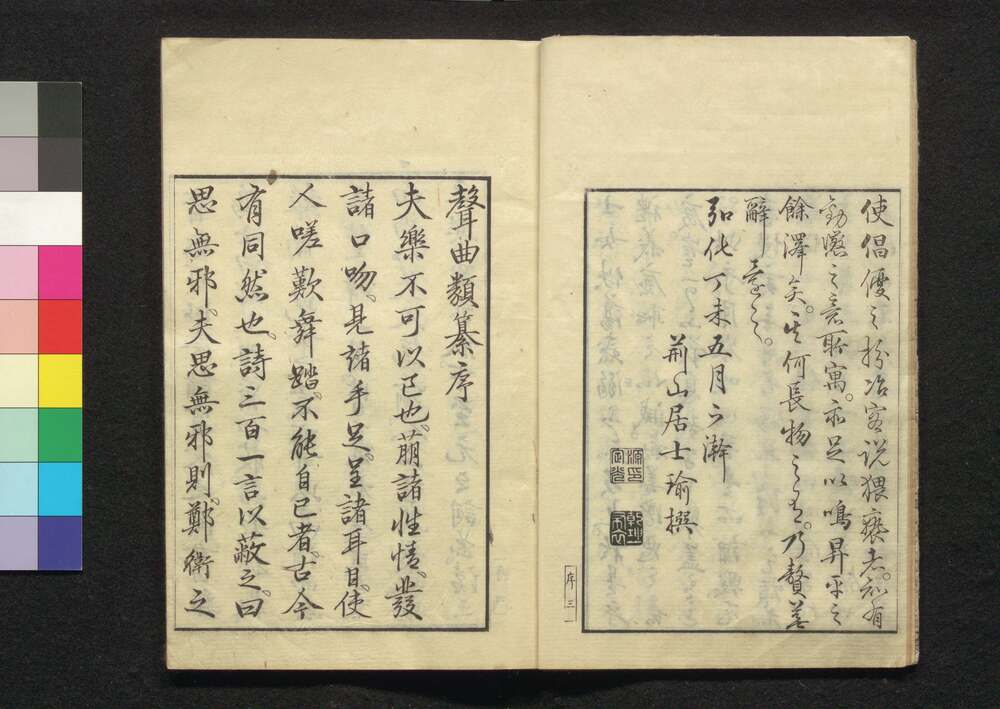 使倡優之扮冶容説猥褻者。知有
勸懲之意所寓。亦足以鳴昇平之
餘澤矣。其何長物之有。乃贅蕪
辭還之。
弘化丁未五月下澣
荊山居士瑜撰
序三
聲曲類纂序
夫樂不可以已也。萠諸性情。發
諸口吻。見諸手足。呈諸耳目。使
人嗟歎舞蹈。不能自已者。古今
有同然也。詩三百一言以蔽之。曰
思無邪。夫思無邪則。鄭衛之